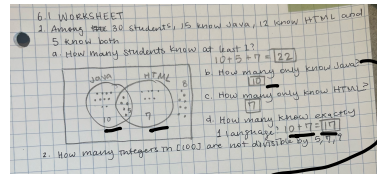 6.1 WORKSHEET
2. Among 30 students, 15 know Java, 12 know HTML and
5 know both
a. How many students know at least 1?
10+5+7 = 22
b. How many only know Java?
10
c. How many only know HTML?
7
d. How many know exactly
1 language? 10+7=17
JAVA HTML 8
10 5 7
2. How many integers in [100] are not divisible by 5, 7, ?